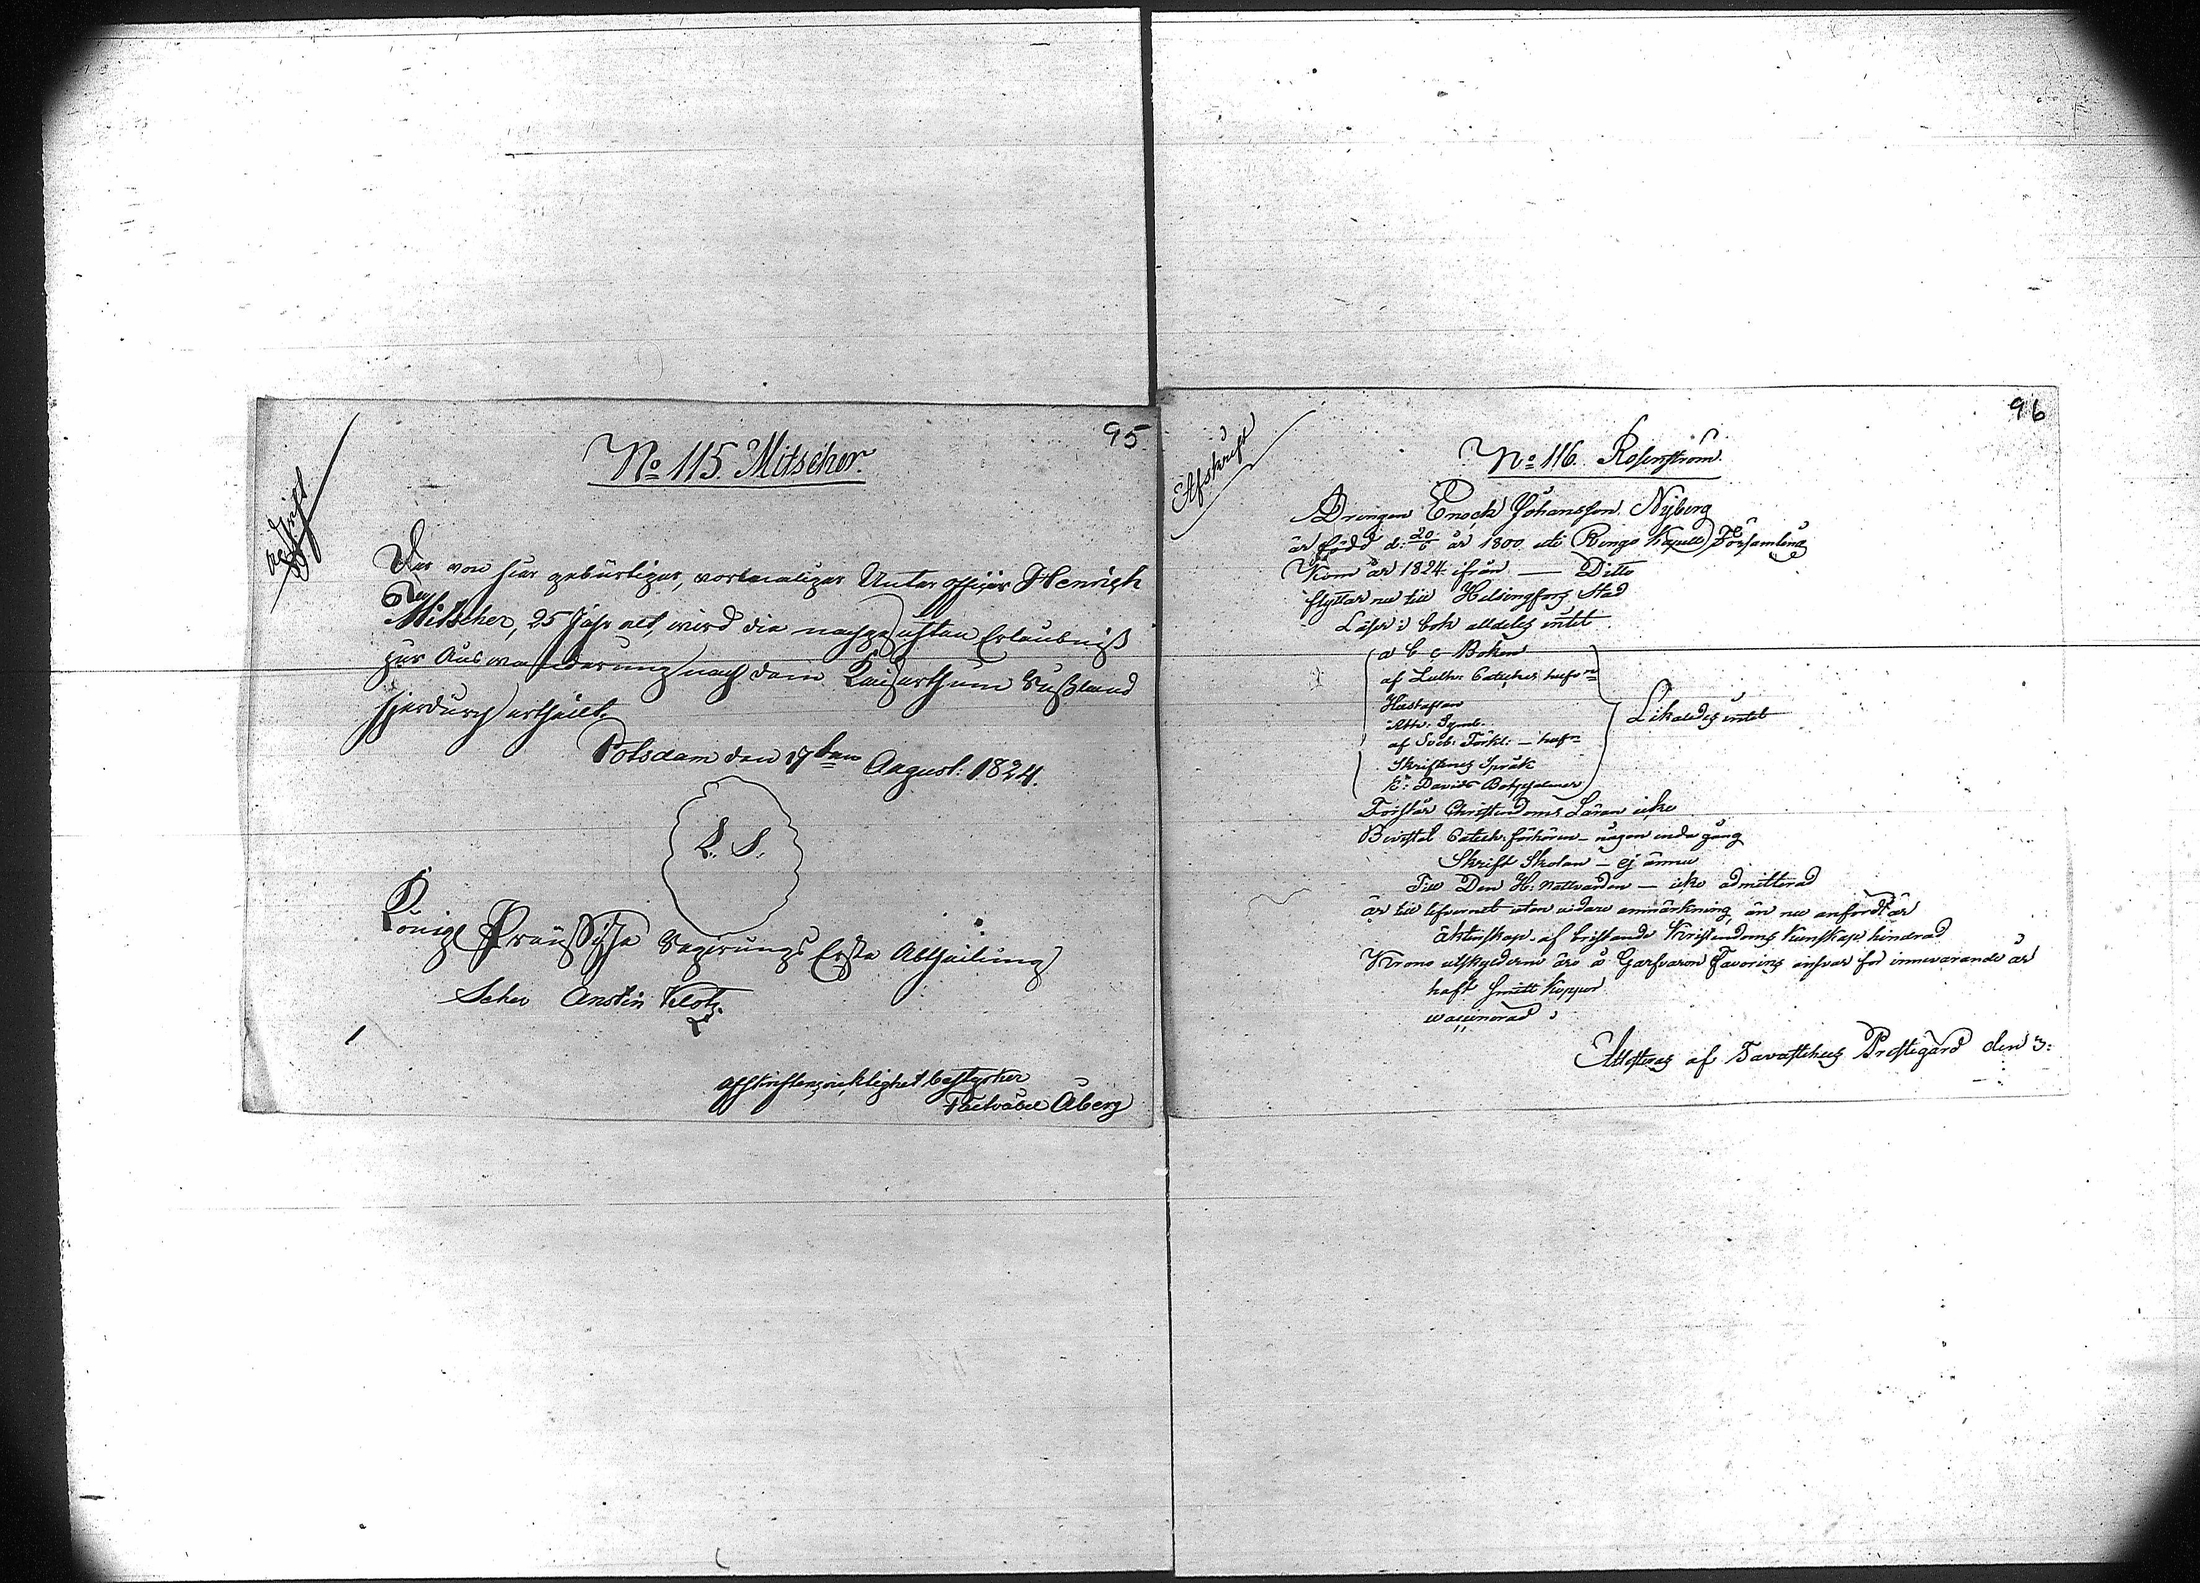 95
Abschrift
No 115. Mitscher.
Der von hier gebürtiger, vormaliger Unterofficier Henrich
Mitscher, 25 Jahr alt, wird die nachgesuchten Erlaubniß
zur Auswanderung nach dem Kaiserthum Rußland
hierdurch ertheilt.
Potsdam den 17ten August: 1824.
L. S.
Königl Preussische Regierungs Erste Abtheilung
Klotz.
Afskriftens riktighet bestyrker
Åberg
96
Afskrift
No 116. Rosenström.
Drengen Enoch Johansson Nyberg
är född d: 20/6 år 1800 uti Rengo Kapell Församling
Kom år 1824 ifrån — Ditto
flyttar nu till Helsingfors Stad
Läser i bok alldeles intet
a b c Boken
af Luth: Cateches hufv
Hustaflan
Ath. Symb.
af Sveb: Förkl: — hufv
Skriftenes Språk
K: Davids Botpsalmer
Likaledes intet
Förstår Christendoms Läran icke
Bevistat Catech: förhören – någon enda gång
Skrift Skolan – ej ännu
Till Den H: Nattvarden — icke admitterad
är till lefvernet utan vidare anmärkning, än nu anfördt är
Äktenskap af bristande Kristendoms Kunskap hindrad
Krono utskylderne äro å Garfvaren Favorins ansvar för innevarande år
haft Smitt Koppor
vaccinerad
Attesteras af Tavastehus Prostegård den 3: